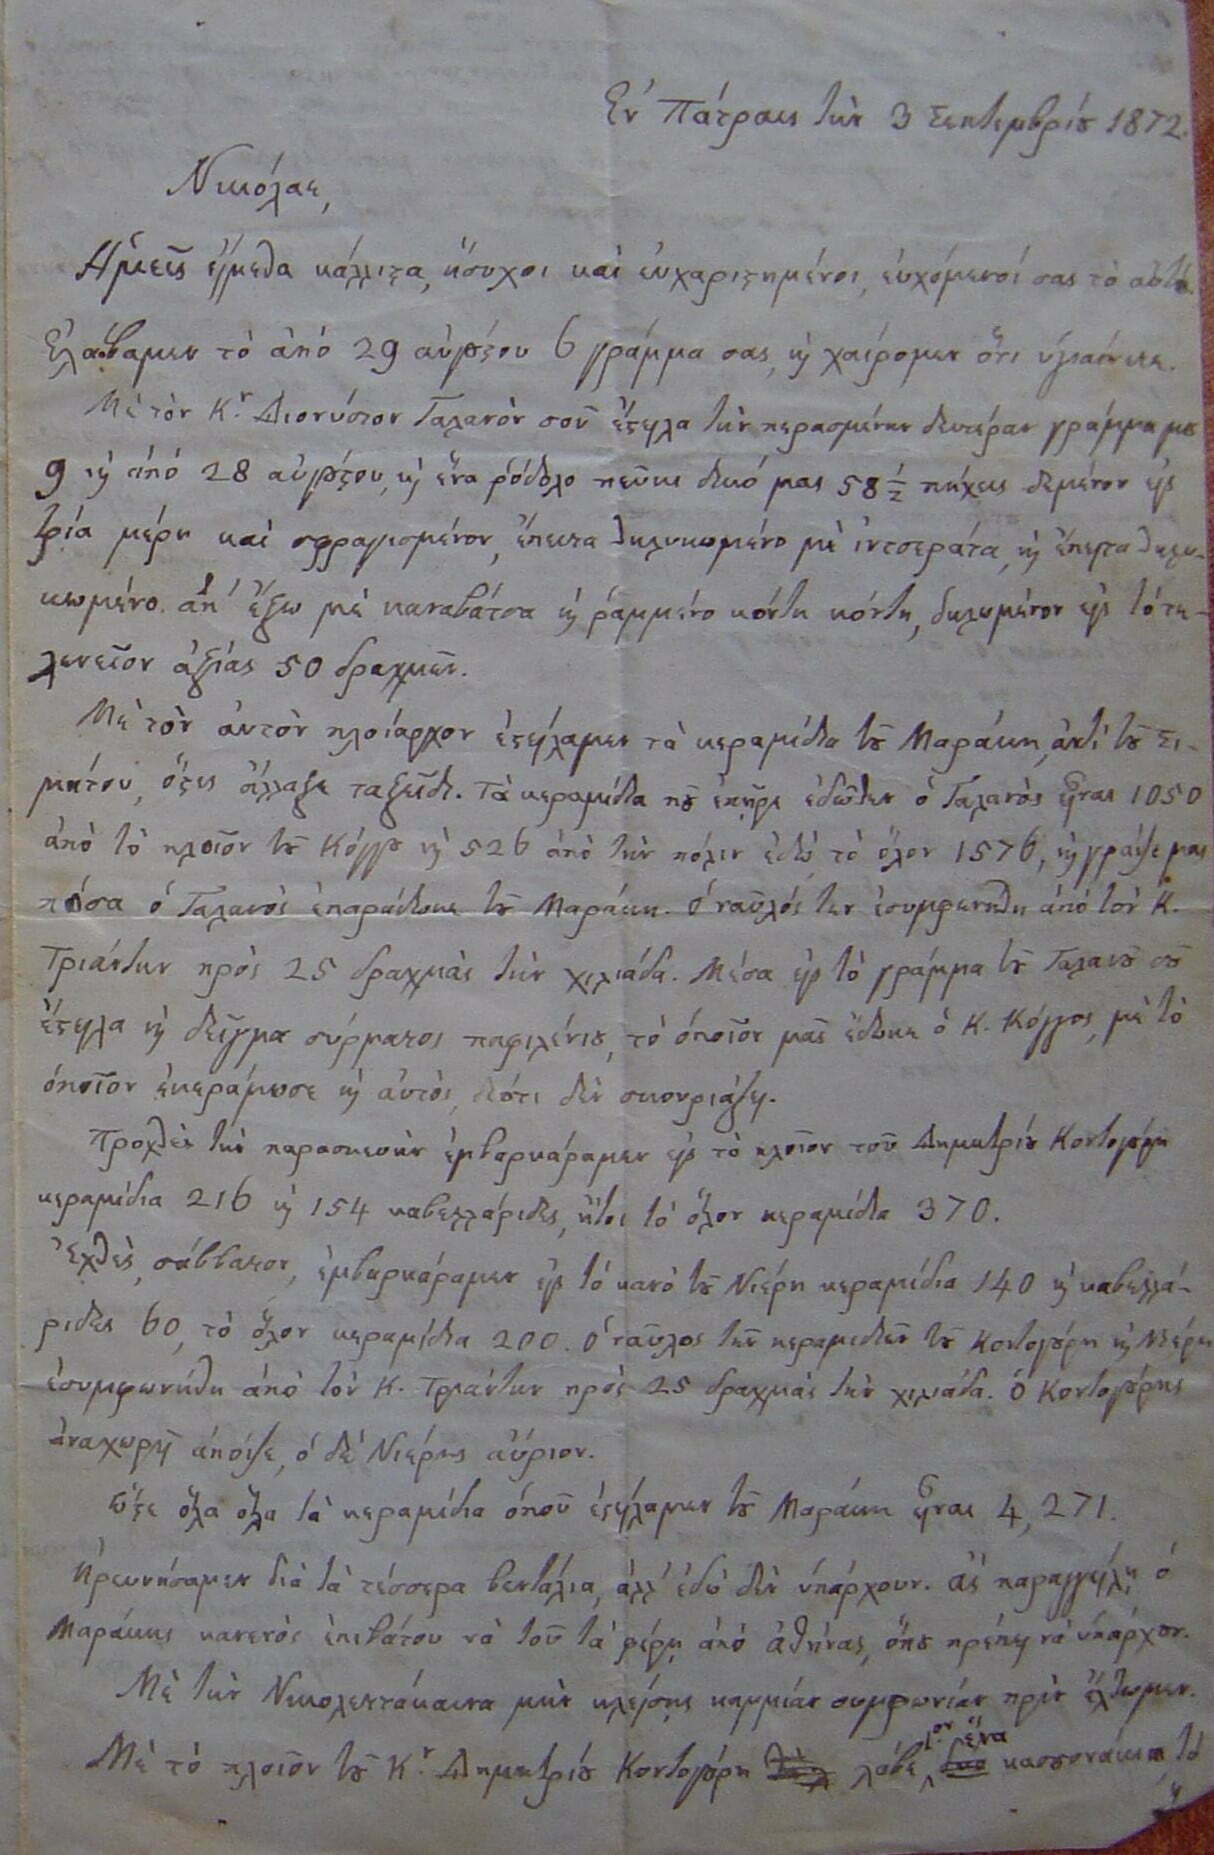 Ἐν Πάτραις τὴν 3 Σεπτεμβρίȣ 1872.
Νικόλαε,
Ἡμεῖς εἴμεθα κάλλιστα, ἥσυχοι καὶ εὐχαριστημένοι, εὐχόμενοί σας τὸ αὐτό.
Ἐλάβαμεν τὸ ἀπὸ 29 αὐγούστου 6 γράμμα σας, κ̀ χαίρομεν ὅτι ὑγιαίνετε.
Μὲ τὸν Κ.ʳ Διονύσιον Γαλανὸν σοῦ ἔστειλα τὴν περασμένην δευτέραν γράμμα μȣ
9 κ̀ ἀπὸ 28 αὐγούστου, κ̀ ἕνα ῥόδολο πεῦκι δικό μας 58 ½ πήχεις δεμένον εἰς
τρία μέρη καὶ σφραγισμένον, ἔπειτα θηλυκωμένο μὲ ἰντσεράτα, κ̀ ἔπειτα θηλυ-
κωμένο ἀπ' ἔξω μὲ καναβάτσα κ̀ ῥαμμένο κόντη κόντη, δηλωμένον εἰς τὸ τε-
λωνεῖον ἀξίας 50 δραχμῶν.
Μὲ τὸν αὐτὸν πλοίαρχον ἐστείλαμεν τὰ κεραμίδια τȣ̃ Μαράκη, ἀντὶ τȣ̃ Σι-
μήτου, ὅστις ἄλλαξε ταξεῖδι. Τὰ κεραμίδια πȣ̃ ἐπῆρε ἐδῶθεν ὁ Γαλανὸς εἶναι 1050
ἀπὸ τὸ πλοῖον τȣ̃ Κόγγȣ κ̀ 526 ἀπὸ τὴν πόλιν ἐδῶ τὸ ὅλον 1576, κ̀ γράψε μας
πόσα ὁ Γαλανὸς ἐπαράδωκε τȣ̃ Μαράκη. Ὁ ναῦλός των ἐσυμφωνήθη ἀπὸ τὸν Κ.
Τριάντην πρὸς 25 δραχμὰς τὴν χιλιάδα. Μέσα εἰς τὸ γράμμα τȣ̃ Γαλανȣ̃ σȣ̃
ἔστειλα κ̀ δεῖγμα σύρματος παφιλένιȣ, τὸ ὁποῖον μᾶς ἔδωκε ὁ Κ. Κόγγος, μὲ τὸ
ὁποῖον ἐκεράμωσε κ̀ αὐτός, διότι δὲν σκουριάζει.
Προχθὲς τὴν παρασκευὴν ἐμβαρκάραμεν εἰς τὸ πλοῖον τοῦ Δημητρίȣ Κοντογȣ́ρη
κεραμίδια 216 κ̀ 154 καβελλάριδες, ἤτοι τὸ ὅλον κεραμίδια 370.
Ἐχθές, σάββατον, ἐμβαρκάραμεν εἰς τὸ καπὸ τȣ̃ Νιέρη κεραμίδια 140 κ̀ καβελλά-
ριδες 60, τὸ ὅλον κεραμίδια 200. Ὁ ναῦλος τῶν κεραμιδιῶν τȣ̃ Κοντογȣ́ρη κ̀ Νιέρη
ἐσυμφωνήθη ἀπὸ τὸν Κ. Τριάντην πρὸς 25 δραχμὰς τὴν χιλιάδα. Ὁ Κοντογȣ́ρης
ἀναχωρεῖ ἀπόψε, ὁ δὲ Νιέρης αὔριον.
Ὥστε ὅλα ὅλα τὰ κεραμίδια ὁποῦ ἐστείλαμεν τȣ̃ Μαράκη εἶναι 4,271.
Ἠρευνήσαμεν διὰ τὰ τέσσερα βεντάλια, ἀλλ' ἐδῶ δὲν ὑπάρχουν. ἂς παραγγείλῃ ὁ
Μαράκης κανενὸς ἐπιβάτου νὰ τοῦ τὰ φέρῃ ἀπὸ ἀθήνας, ὅπȣ πρέπει νὰ ὑπάρχȣν.
Μὲ τὴν Νικολεντάκαινα μὴν κλείσῃς καμμίαν συμφωνίαν πρὶν ἔλθωμεν.
Μὲ τὸ πλοῖον τȣ̃ Κ.ʳ Δημητρίȣ Κοντογȣ́ρη λάβε, 1.ον ἕνα κασσονάκι, τὸ